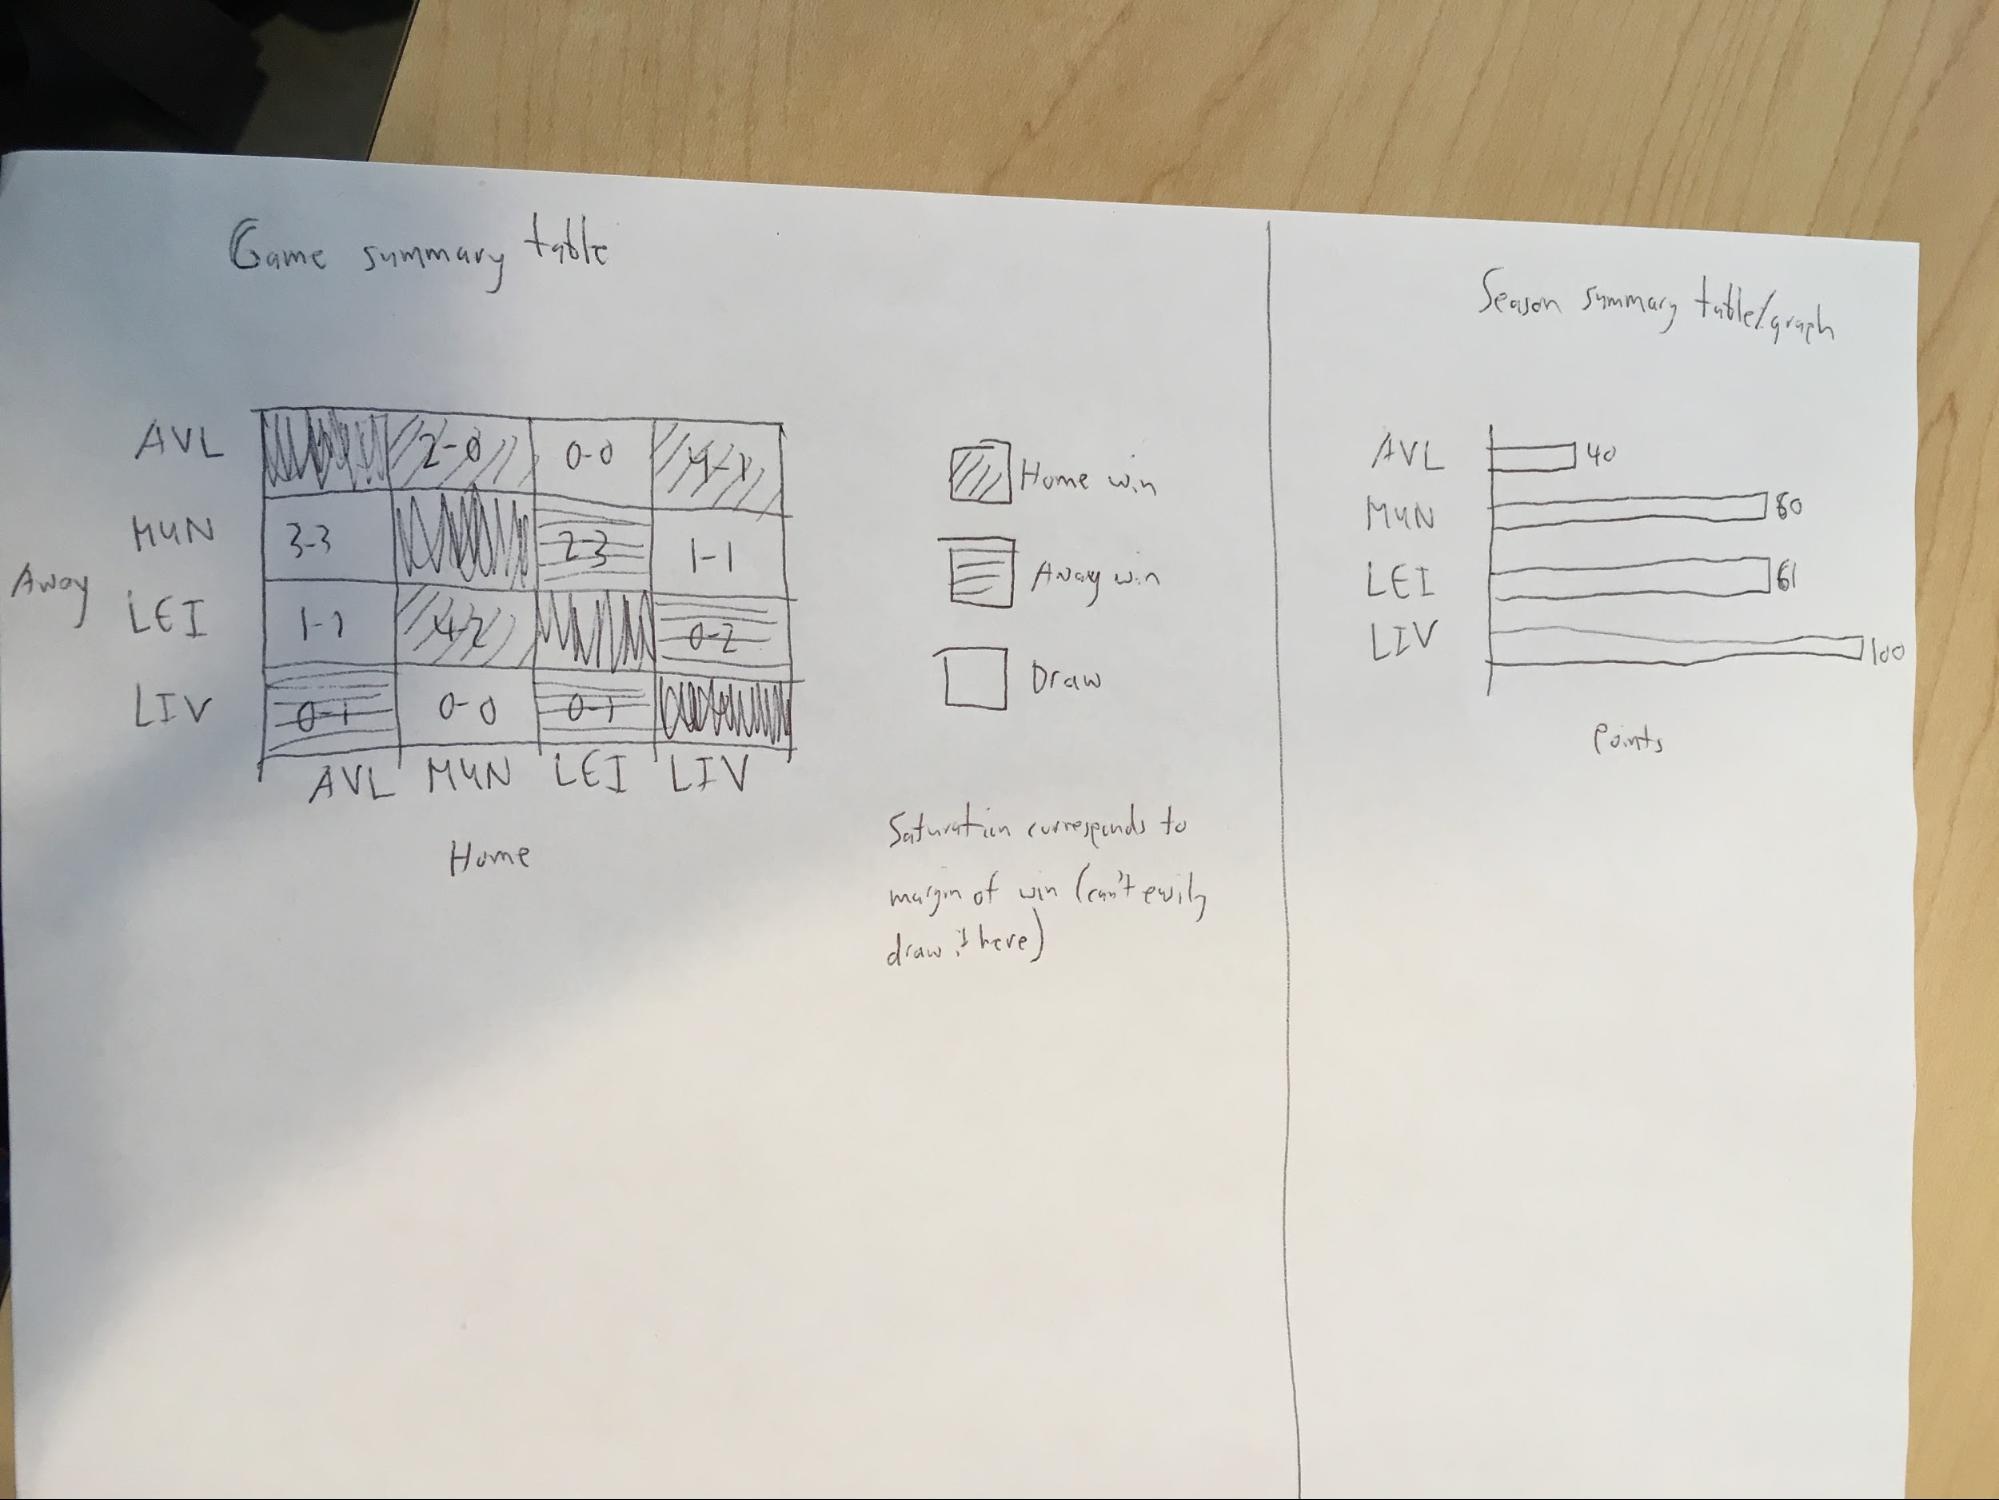 Game summary table
AVL 2-0 0-0 4-1
MUN 3-3 2-3 1-1
Away
LEI 1-1 4-2 0-2
LIV 0-1 0-0 0-1
AVL MUN LEI LIV
Home
Home win
Away win
Draw
Saturation corresponds to
margin of win (can't easily
draw it here)
Season summary table/graph
AVL 40
MUN 80
LEI 81
LIV 100
Points